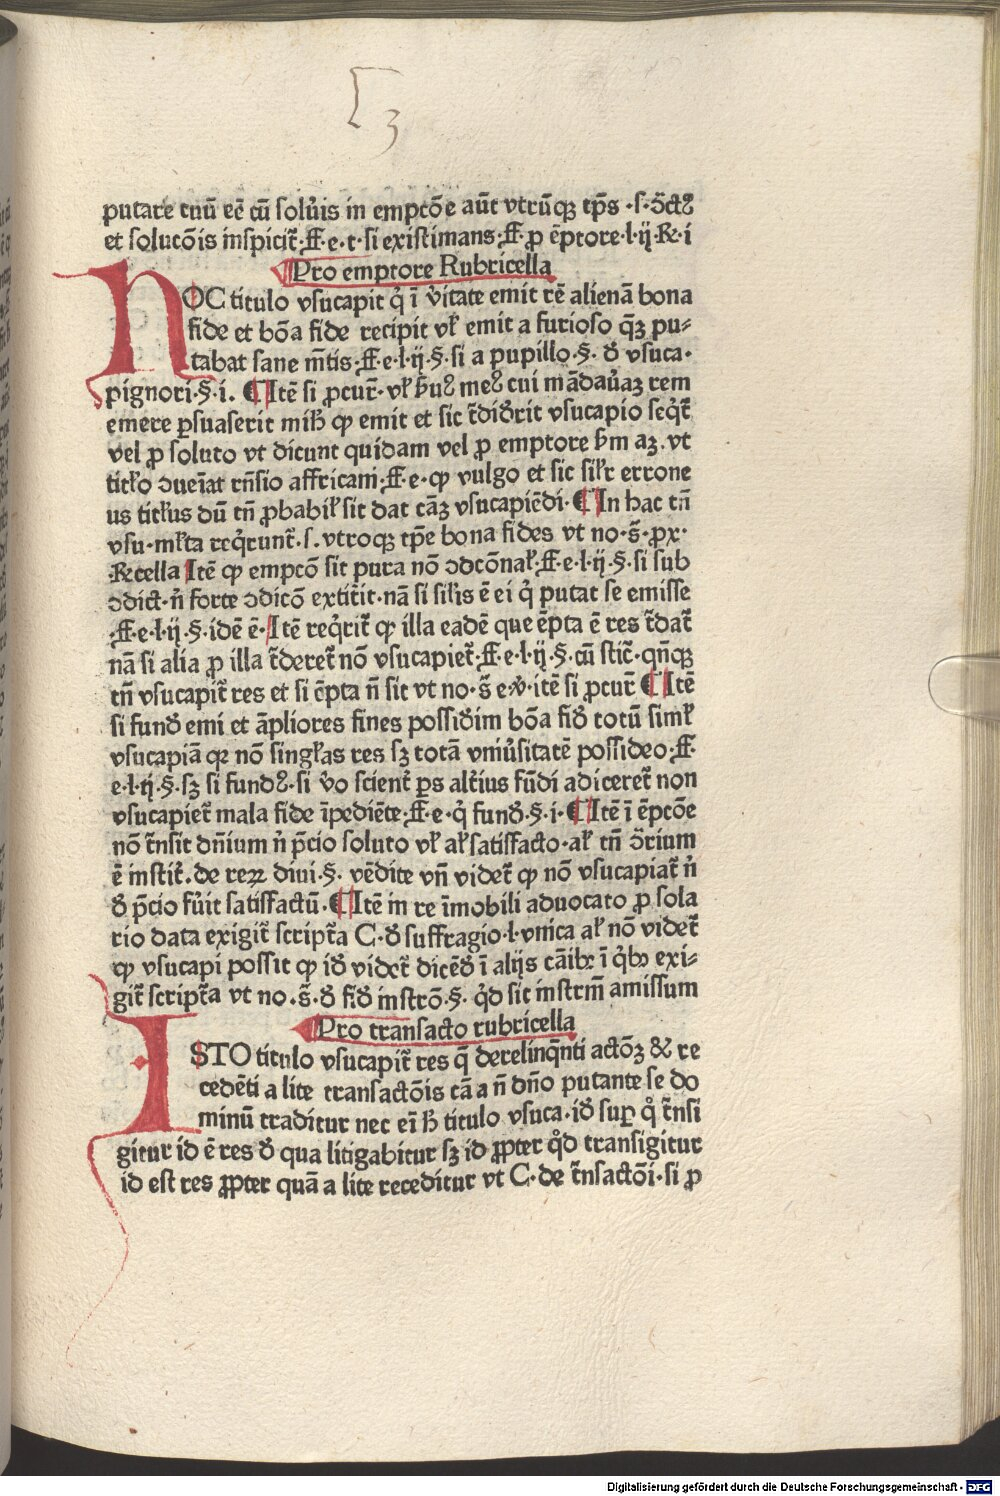 [3
putare tuū eē cū solu̓is in emptōe aūt vtrūqꝫ tp̄s ·s·ↄ̄ctꝰ
et solutōis inspicit̄·ff·e·t·si existimans·ff·ꝓ ēptore·l·ij·R·i
Pro emptore Rubricella
HOC titulo vsucapit q̇ ī v̓itate emit rē alienā bona
fide et bōa fide recipit vl̓ emit a furioso qȝ pu-
tabat sane m̄tis·ff·e·l·ij·§·si a pupillo·§·ꝺ̓ vsuca·
pignori·§·i· ¶Itē si ꝓcur̄·vl̓ ẜuꝰ meꝰ cui mādau̓aȝ rem
emere ꝑsuaserit mih̄ ꝙ emit et sic t̄did̓rit vsucapio seq̇t̄
vel ꝓ soluto vt dicunt quidam vel ꝓ emptore ẜm aȝ·vt
titl̓o ↄueīat rn̄sio affricani·ff·e·ꝙ vulgo et sic sil̓r errone
us titl̓us dū tn̄ ꝓbabil̓ sit dat cāȝ vsucapiēdi·¶In hac tn̄
vsu·ml̓ta req̇runt̄·s·vtroqꝫ tp̄e bona fides vt no·s̄·ꝓx·
Rcella Itē ꝙ emptō sit pura nō ↄdcōnal̓·ff·e·l·ij·§·si sub
ↄdict·n̓ forte ↄdicō extit̓it·nā si sil̓is ē ei q̇ putat se emisse
·ff·e·l·ij·§·idē ē·Itē req̇rit̄ ꝙ illa eadē que ēpta ē res t̄dat̄
nā si alia ꝓ illa t̄deret̄ nō vsucapiet̄·ff·e·l·ij·§·cū stic̄·qn̄qꝫ
tn̄ vsucapit̄ res et si ēpta n̄ sit vt no·s̄ e·v̓·itē si ꝓcur̄ ¶Itē
si fund̓ emi et āpliores fines possid̓im bōa fid̓ totū siml̓
vsucapiā qꝛ nō singl̓as res sȝ totā vniu̓sitatē possideo·ff·
e·l·ij·§·sȝ si fundꝰ·si v̓o scient̄ ꝑs alt̓ius fūdi adiceret̄ non
vsucapiet̄ mala fide īpediēte·ff·e·q̇ fund̓·§·i·¶Itē ī ēptōe
nō t̄nsit dn̄ium n̓ p̄cio soluto vl̓ al̓ satisfacto·al̓ tn̄ ↄ̄rium
ē instit̄·de reꝝ diui·§·vēdite vn̄ videt̄ ꝙ nō vsucapiat̄ n̓
ꝺ̓ p̄cio fu̓it satisfactū·¶Itē in re īmobili aduocato ꝓ sola
rio data exigit̄ script̄a C·ꝺ̓ suffragio·l·vnica al̓ nō videt̄
ꝙ vsucapi possit ꝙ id̓ videt̄ dicēd̓ ī alijs cāibꝫ ī q̇bꝫ exi-
git̄ script̄a vt no·s̄·ꝺ̓ fid̓ instrō·§·q̇d sit instrm̄ amissum
Pro transacto rubricella
ISTO titulo vsucapit̄ res q̄ derelinqn̄ti actōȝ & re
cedēti a lite transactōis cā a n̄ dn̄o putante se do
minū traditur nec eī h̄ titulo vsuca·id̓ suꝑ q̊ t̄nsi
gitur id ē res ꝺ̓ qua litigabitur sȝ id ꝓpter q̊d transigitur
id est res ꝓpter quā a lite receditur vt C·de t̄nsactōi·si ꝓ
Digitalisierung gefördert durch die Deutsche Forschungsgemeinschaft · DFG